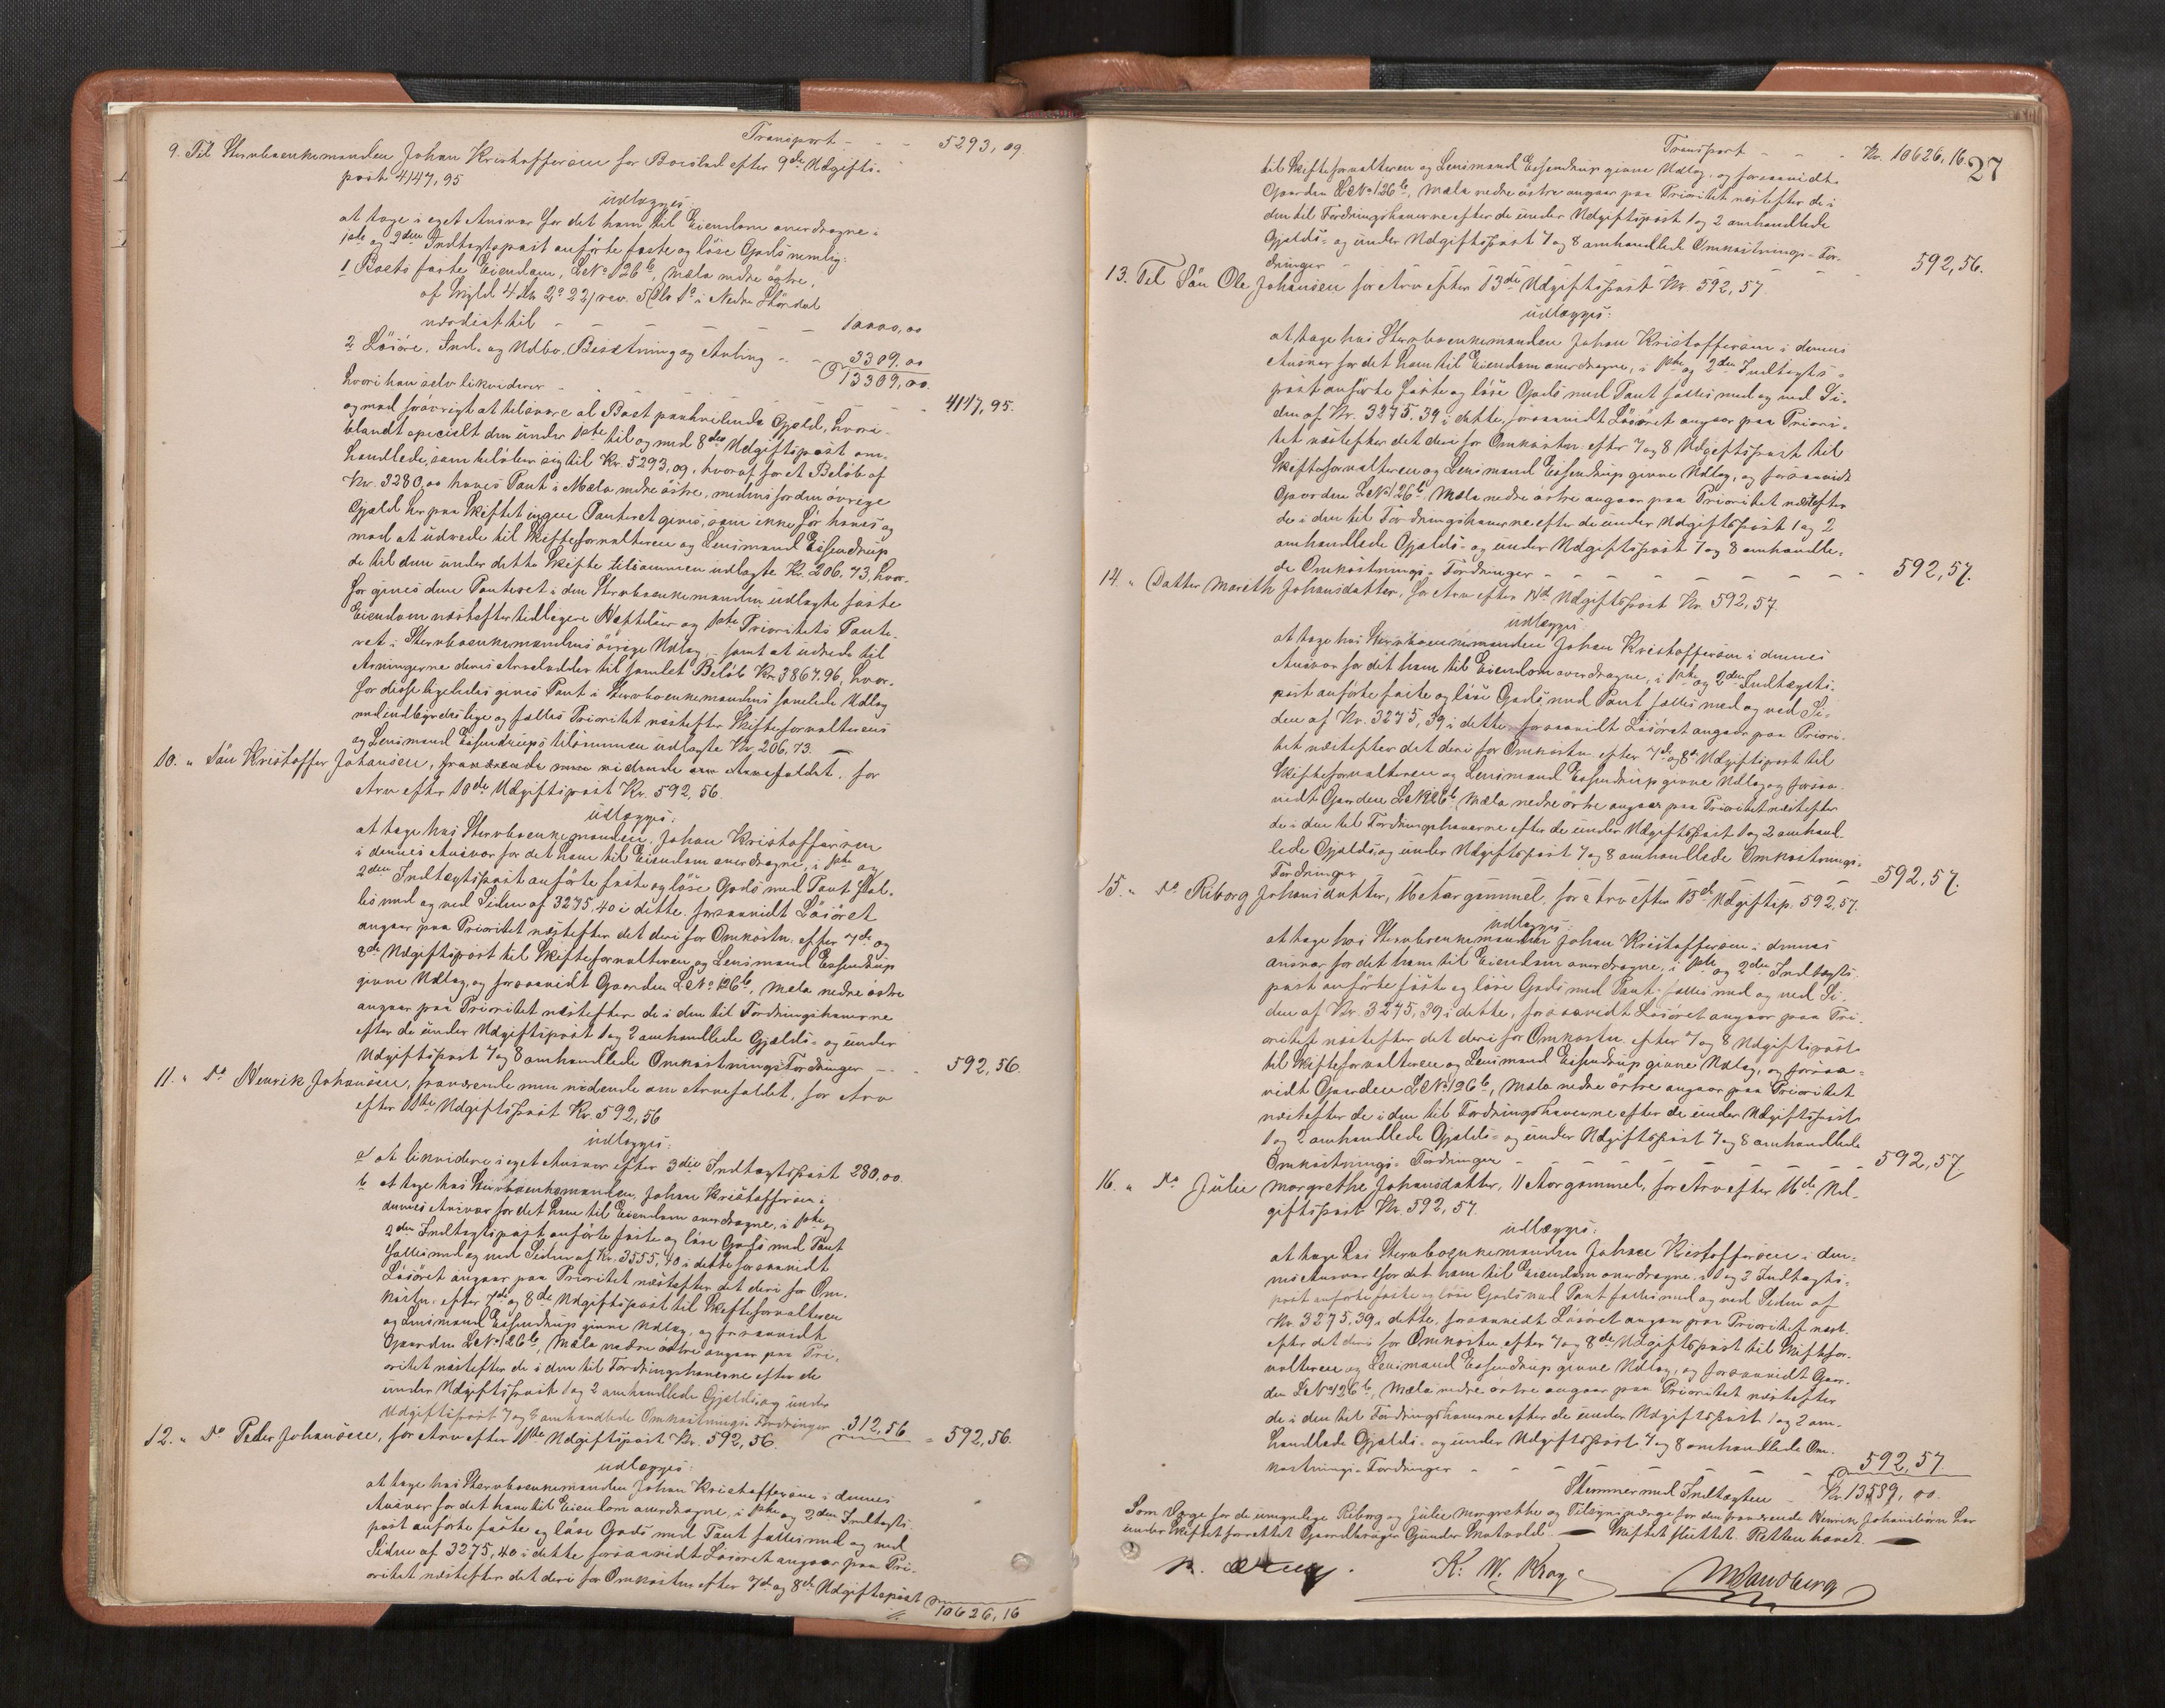 Transport - - - 5293,09.
9. Til Stervboenkemanden Johan Kristoffersen for Boeslod efter 9de Udgifts-
post 4147,95
udlægges:
at tage i eget Ansvar for det ham til Eiendom overdragne i
1ste og 2den Indtægtspost anførte faste og løse Gods nemlig:
1 Boets faste Eiendom, L.No 126b, Mæla nedre østre,
af Skyld 4 Mk. 2 22/ rev. 5 Ort 1s i Nedre Størdal
værdsat til - - - - - 10000,00
2 Løsøre, Ind- og Udbo, Besætning og Avling - - 3309,00
13309,00.
hvori han selv likviderer - - - - - - 4147,95.
og mod forøvrigt at tilsvare al Boet paahvilende Gjæld, hvori-
blandt specielt den under 1ste til og med 8de Udgiftspost om-
handlede, som beløber sig til Kr. 5293,09, hvoraf for et Beløb af
Kr. 3280,00 haves Pant i Mæla nedre østre, medens for den øvrige
Gjæld her paa Skiftet ingen Panteret gives, som ikke før haves og
mod at udrede til Skifteforvalteren og Lensmand Essendrup
de til dem under dette Skifte tilsammen udlagte Kr. 206,73, hvor-
for gives dem Panteret i den Stervboenkemanden udlagte faste
Eiendom næstefter tidligere Heftelser og 1ste Prioritets Pante-
ret i Stervboenkemandens øvrige Udlag, - samt at udrede til
Arvingerne deres Arvelodder til samlet Beløb Kr. 3867,96, hvor-
for disse ligeledes gives Pant i Stervboenkemandens samlede Udlag
med indbyrdes lige og fælles Prioritet næstefter Skifteforvalterens
og Lensmand Essendrups tilsammen udlagte Kr. 206,73. —
10. " Søn Kristoffer Johansen, fraværende men vidende om Arvefaldet, for
Arv efter 10de Udgiftspost Kr. 592,56.
udlægges:
at tage hos Stervboenkemanden Johan Kristoffersen
i dennes Ansvar for det ham til Eiendom overdragne, i 1ste og
2den Indtægtspost anførte faste og løse Gods med Pant fæl-
les med og ved Siden af 3275,40 i dette, forsaavidt Løsøret
angaar paa Prioritet næstefter det deri for Omkostn. efter 7de og
8de Udgiftspost til Skifteforvalteren og Lensmand Essendrup
givne Udlæg, og forsaavidt Gaarden L.No 126b, Mæla nedre østre
angaar paa Prioritet næstefter de i den til Fordringshaverne
efter de under Udgiftspost 1 og 2 omhandlede Gjælds- og under
Udgiftspost 7 og 8 omhandlede Omkostnings-Fordringer - - 592,56.
11. " Do Henrik Johansen, fraværende men vidende om Arvefaldet, for Arv
efter 11te Udgiftspost Kr. 592,56
udlægges:
a at likvidere i eget Ansvar efter 3die Indtægtspost 280,00.
b at tage hos Stervboenkemanden Johan Kristoffersen i
dennes Ansvar for det ham til Eiendom overdragne, i 1ste og
2den Indtægtspost anførte faste og løse Gods med Pant
fælles med og ved Siden af Kr. 3555,40 i dette forsaavidt
Løsøret angaar paa Prioritet næstefter det deri for Om-
kostn. efter 7de og 8de Udgiftspost til Skifteforvalteren
og Lensmand Essendrup givne Udlæg, og forsaavidt
Gaarden L.No 126b, Mæla nedre østre angaar paa Pri-
oritet næstefter de i den til Fordringshaverne efter de
under Udgiftspost 1 og 2 omhandlede Gjælds- og under
Udgiftspost 7 og 8 omhandlede Omkostnings-Fordringer 312,56 - 592,56.
12. " Do Peder Johansen, for Arv efter 11te Udgiftspost Kr. 592,56.
udlægges:
at tage hos Stervboenkemanden Johan Kristoffersen i dennes
Ansvar for det ham til Eiendom overdragne, i 1ste og 2den Indtægts-
post anførte faste og løse Gods med Pant fælles med og ved
Siden af 3275,40 i dette forsaavidt Løsøret angaar paa Pri-
oritet næstefter det deri for Omkostn. efter 7de og 8de Udgiftspost
10626,16
Transport - - - Kr. 10626,16.
27
til Skifteforvalteren og Lensmand Essendrup givne Udlæg, og forsaavidt
Gaarden L.No 126b, Mæla nedre østre angaar paa Prioritet næstefter de i
den til Fordringshaverne efter de under Udgiftspost 1 og 2 omhandlede
Gjælds- og under Udgiftspost 7 og 8 omhandlede Omkostnings-For-
dringer - - - - - - - 592,56.
13. Til Søn Ole Johansen for Arv efter 13de Udgiftspost Kr. 592,57
udlægges:
at tage hos Stervboenkemanden Johan Kristoffersen i dennes
Ansvar for det ham til Eiendom overdragne, i 1ste og 2den Indtægts-
post anførte faste og løse Gods med Pant fælles med og ved Si-
den af Kr. 3275,39 i dette, forsaavidt Løsøret angaar paa Priori-
tet næstefter det deri for Omkostn. efter 7 og 8 Udgiftspost til
Skifteforvalteren og Lensmand Essendrup givne Udlæg, og forsaavidt
Gaarden L.No 126b, Mæla nedre østre angaar paa Prioritet næstefter
de i den til Fordringshaverne efter de under Udgiftspost 1 og 2
omhandlede Gjælds- og under Udgiftspost 7 og 8 omhandle-
de Omkostnings-Fordringer - - - - - - - 592,57.
14. " Datter Mareth Johansdatter, for Arv efter 14de Udgiftspost Kr. 592,57.
udlægges:
at tage hos Stervboenkemanden Johan Kristoffersen i dennes
Ansvar for det ham til Eiendom overdragne, i 1ste og 2den Indtægts-
post anførte faste og løse Gods, med Pant fælles med og ved Si-
den af Kr. 3275,39 i dette, forsaavidt Løsøret angaar paa Priori-
tet næstefter det deri for Omkostn. efter 7de og 8de Udgiftspost til
Skifteforvalteren og Lensmand Essendrup givne Udlæg og forsaa-
vidt Gaarden L.No 126b, Mæla nedre østre angaar paa Prioritet næstefter
de i den til Fordringshaverne efter de under Udgiftspost 1 og 2 omhand-
lede Gjælds- og under Udgiftspost 7 og 8 omhandlede Omkostnings-
Fordringer - - - - - - - 592,57.
15. " Do Riborg Johansdatter, 16 Aar gammel, for Arv efter 15de Udgiftsp. 592,57.
udlægges:
at tage hos Stervboenkemanden Johan Kristoffersen i dennes
Ansvar for det ham til Eiendom overdragne, i 1ste og 2den Indtægts-
post anførte faste og løse Gods med Pant fælles med og ved Si-
den af Kr. 3275,39 i dette, forsaavidt Løsøret angaar paa Pri-
oritet næstefter det deri for Omkostn. efter 7 og 8 Udgiftspost
til Skifteforvalteren og Lensmand Essendrup givne Udlæg, og forsaa-
vidt Gaarden L.No 126b, Mæla nedre østre angaar paa Prioritet
næstefter de i den til Fordringshaverne efter de under Udgiftspost
1 og 2 omhandlede Gjælds- og under Udgiftspost 7 og 8 omhandlede
Omkostnings-Fordringer - - - - - - - 592,57
16. " Do Julie Margrethe Johansdatter, 11 Aar gammel, for Arv efter 16de Ud-
giftspost Kr. 592,57.
udlægges:
at tage hos Stervboenkemanden Johan Kristoffersen i den-
nes Ansvar for det ham til Eiendom overdragne, i 1 og 2 Indtægts-
post anførte faste og løse Gods med Pant fælles med og ved Siden af
Kr. 3275,39 i dette, forsaavidt Løsøret angaar paa Prioritet næst-
efter det deri for Omkostn. efter 7 og 8de Udgiftspost til Skiftefor-
valteren og Lensmand Essendrup givne Udlæg, og forsaavidt Gaar-
den L.No 126b, Mæla nedre østre angaar paa Prioritet næstefter
de i den til Fordringshaverne efter de under Udgiftspost 1 og 2 om-
handlede Gjælds- og under Udgiftspost 7 og 8 omhandlede Om-
kostnings-Fordringer - - - - - - 592,57.
Stemmer med Indtægten - Kr. 13589,00.
Som Værge for de umyndige Riborg og Julie Margrethe og Tilsynsværge for den fraværende Henrik Johansbørn har
under Skiftet forrettet Gaardbruger Gunder Hotvold. — Skiftet sluttet. Retten hævet. —
K. W. Krog
M Sandberg